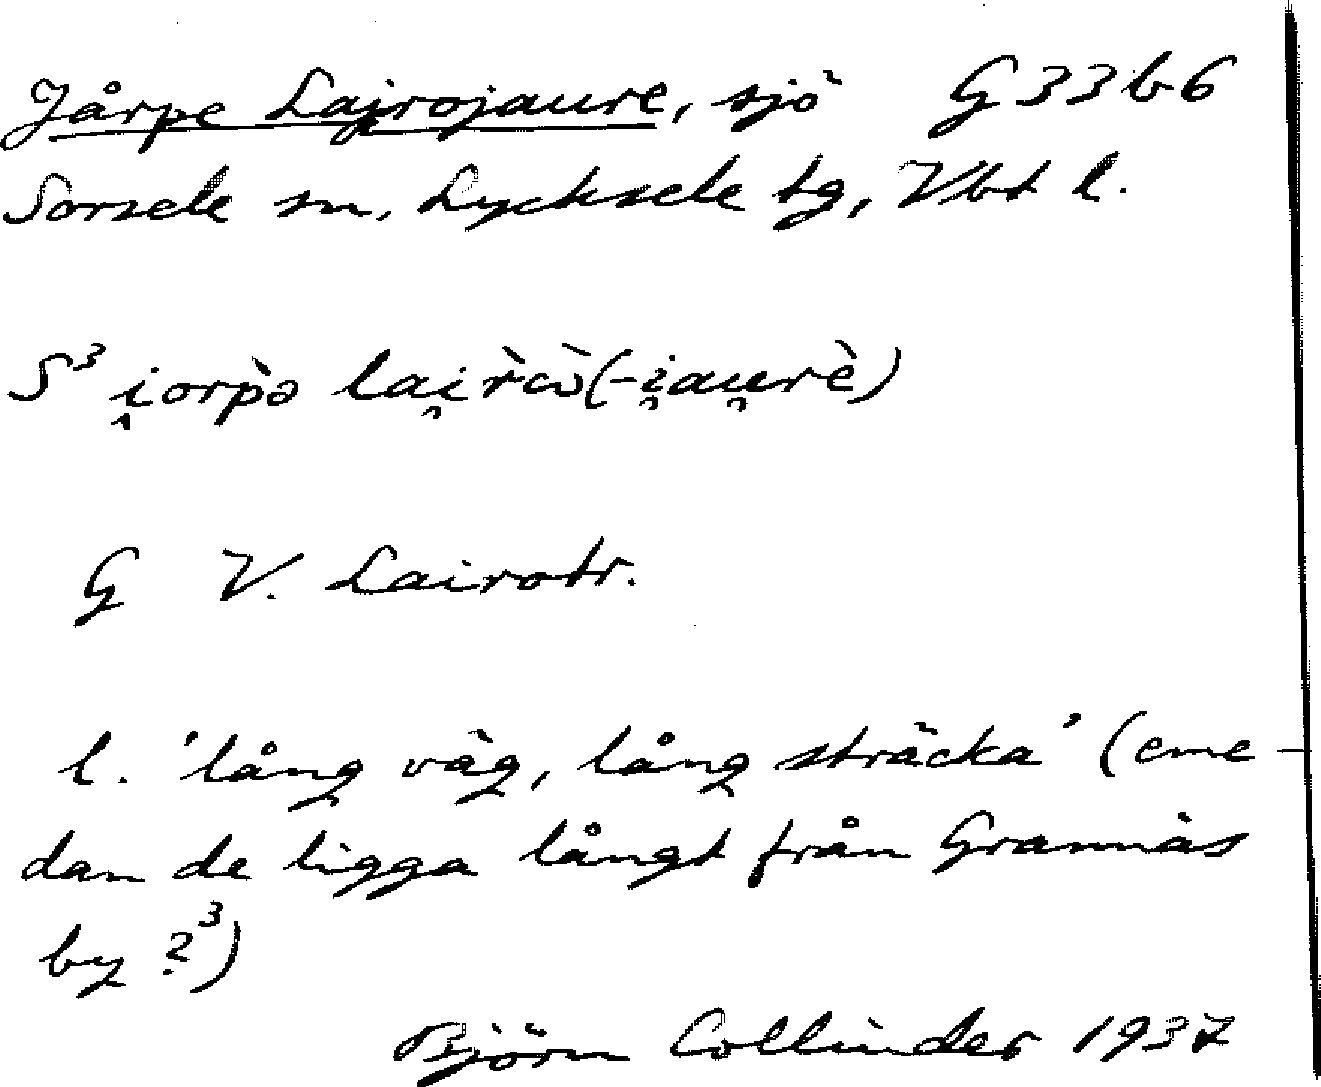 Jårpe Lajrojaure, sjö G 33 b 6
Sorsele sn, Lycksele tg, Vbt l.
S³ i̯orp̀ə lai̯r̀ὼ(-i̯au̯rè)
G V. Lairotr.
l. 'lång väg, lång sträcka' (eme-
dan de ligga långt från Grannäs
by ?³)
Björn Collinder 1937